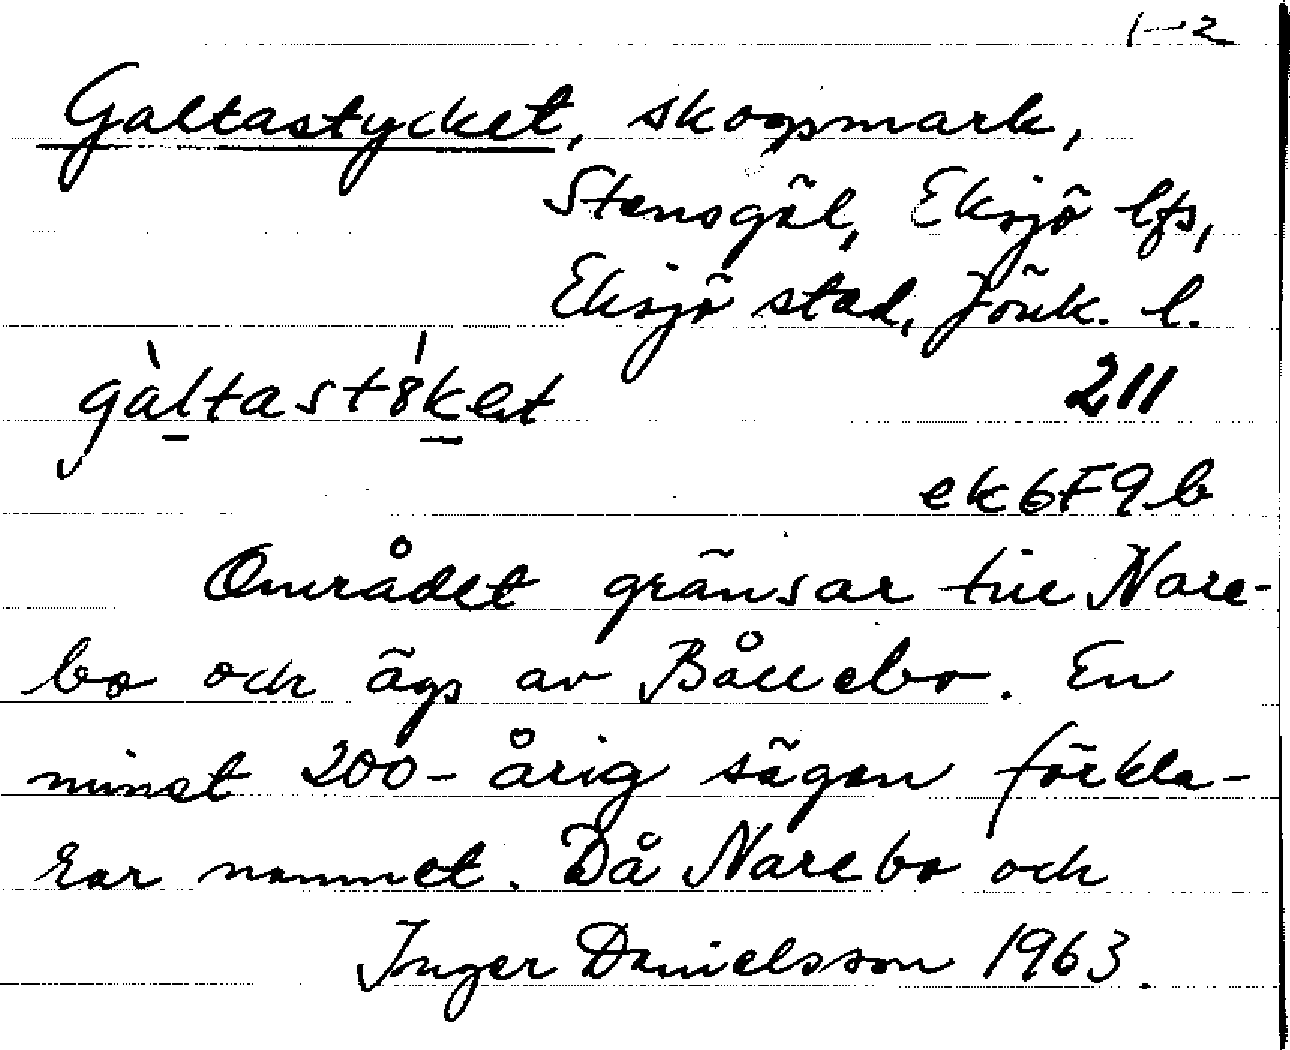 1–2
Galtastycket, skogsmark,
Stensgöl, Eksjö lfs,
Eksjö stad, Jönk. l.
gàltast8́ket
211
ek6F9b
Området gränsar till Nare-
bo och ägs av Bållebo. En
minst 200-årig sägen förkla-
rar namnet. Då Narebo och
Inger Danielsson 1963.